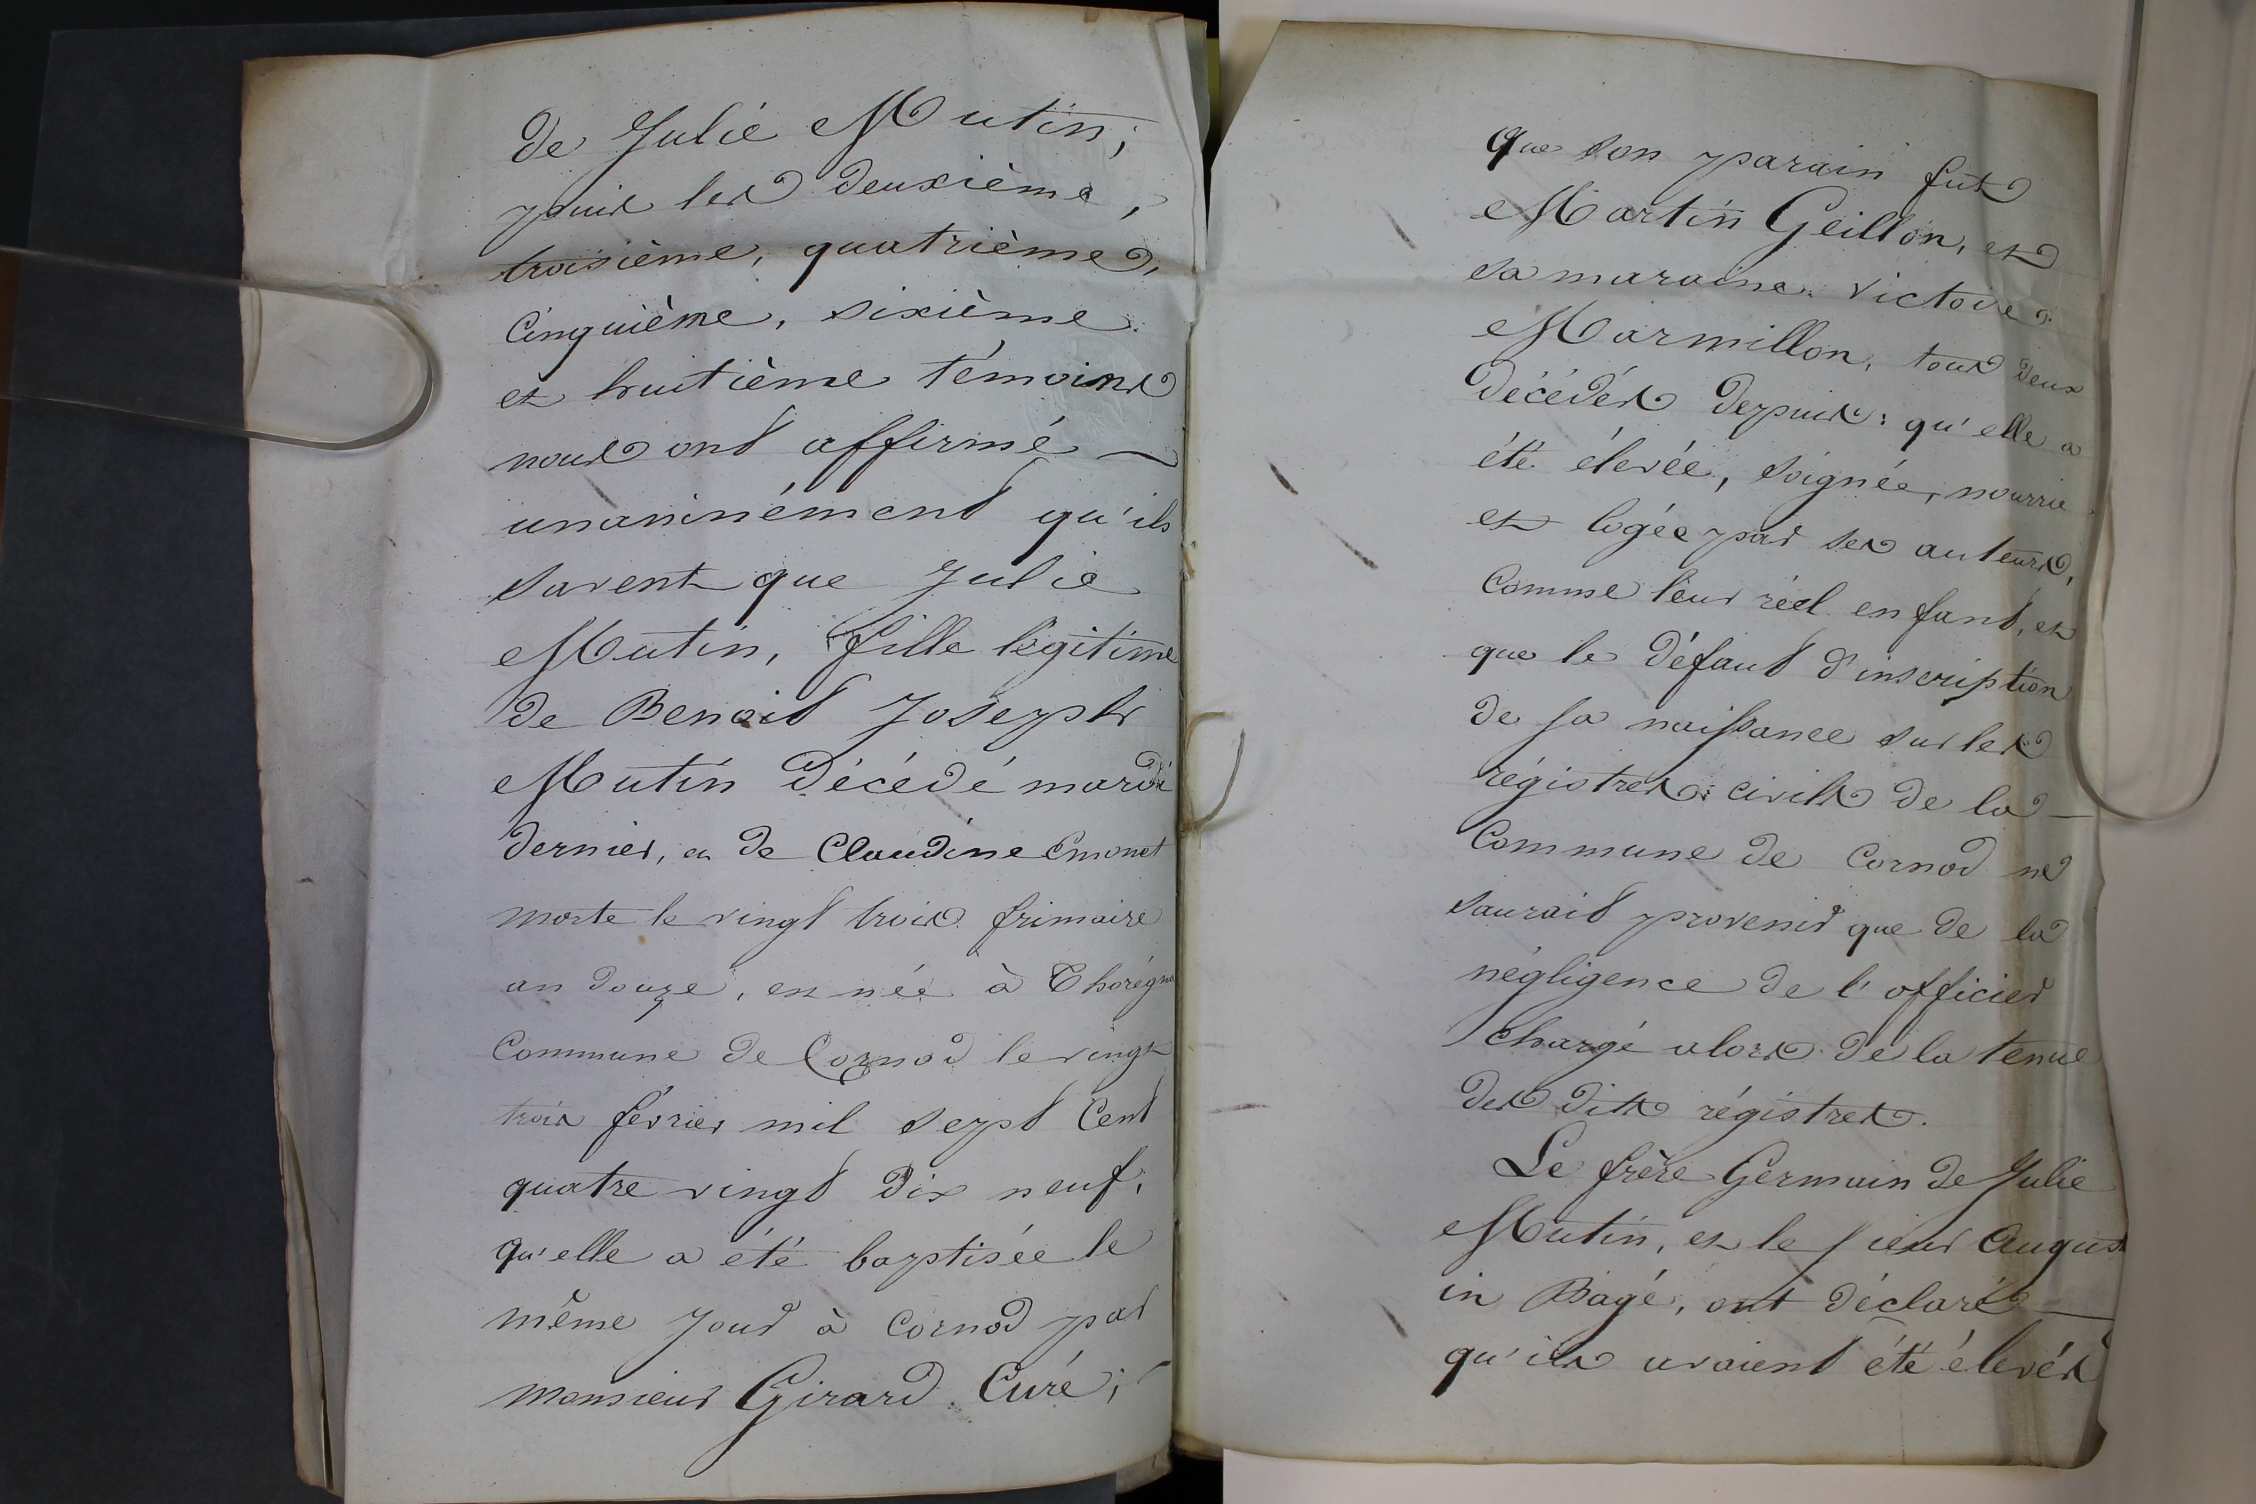 de Julie Mutin;
puis les deuxième,
troisième, quatrième,
cinquième, sixième
et huitième témoins
nous ont affirmé
unaninément qu'ils
savent que Julie
Mutin, fille légitime
de Benoit Joseph
Mutin décédé mardi
dernier, et de Claudine Emonet
morte le vingt trois frimaire
an douze, est née à Thorégna
Commune de Cornod le vingt
trois février mil sept cent
quatre vingt dix neuf,
qu'elle a été baptisée le
même jour à Cornod par
monsieur Girard Curé;
que son parain fut
Martin Geillon, et
sa maraine victoire
Marmillon, tous deux
décédés depuis: qu'elle a
été élevée, soignée, nourrie
et logée par ses auteurs,
comme leur réel enfant, et
que le défaut d'inscription
de sa naissance sur les
régistres civils de la
Commune de Cornod ne
saurait provenir que de la
négligence de l'officier
chargé alors de la tenue
des dits régistres.
Le frère Germain de Julie
Mutin, et le sieur August
in Bagé, ont déclaré
qu'ils avaient été élevés